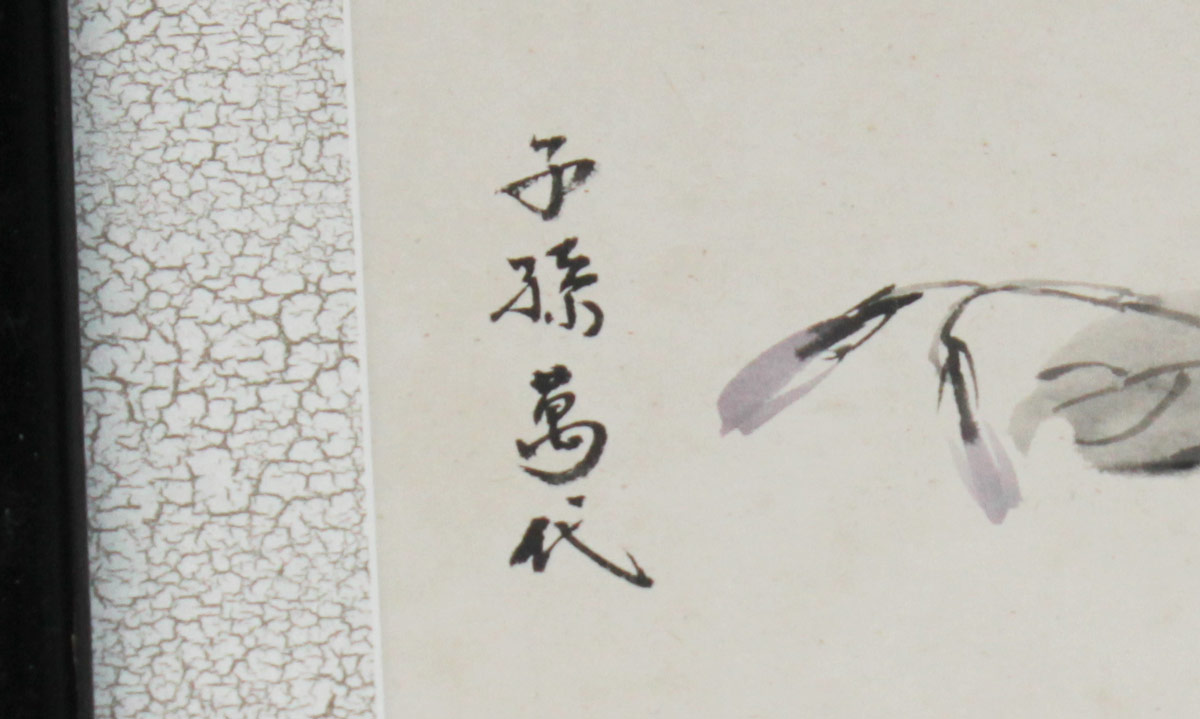 子孫萬代